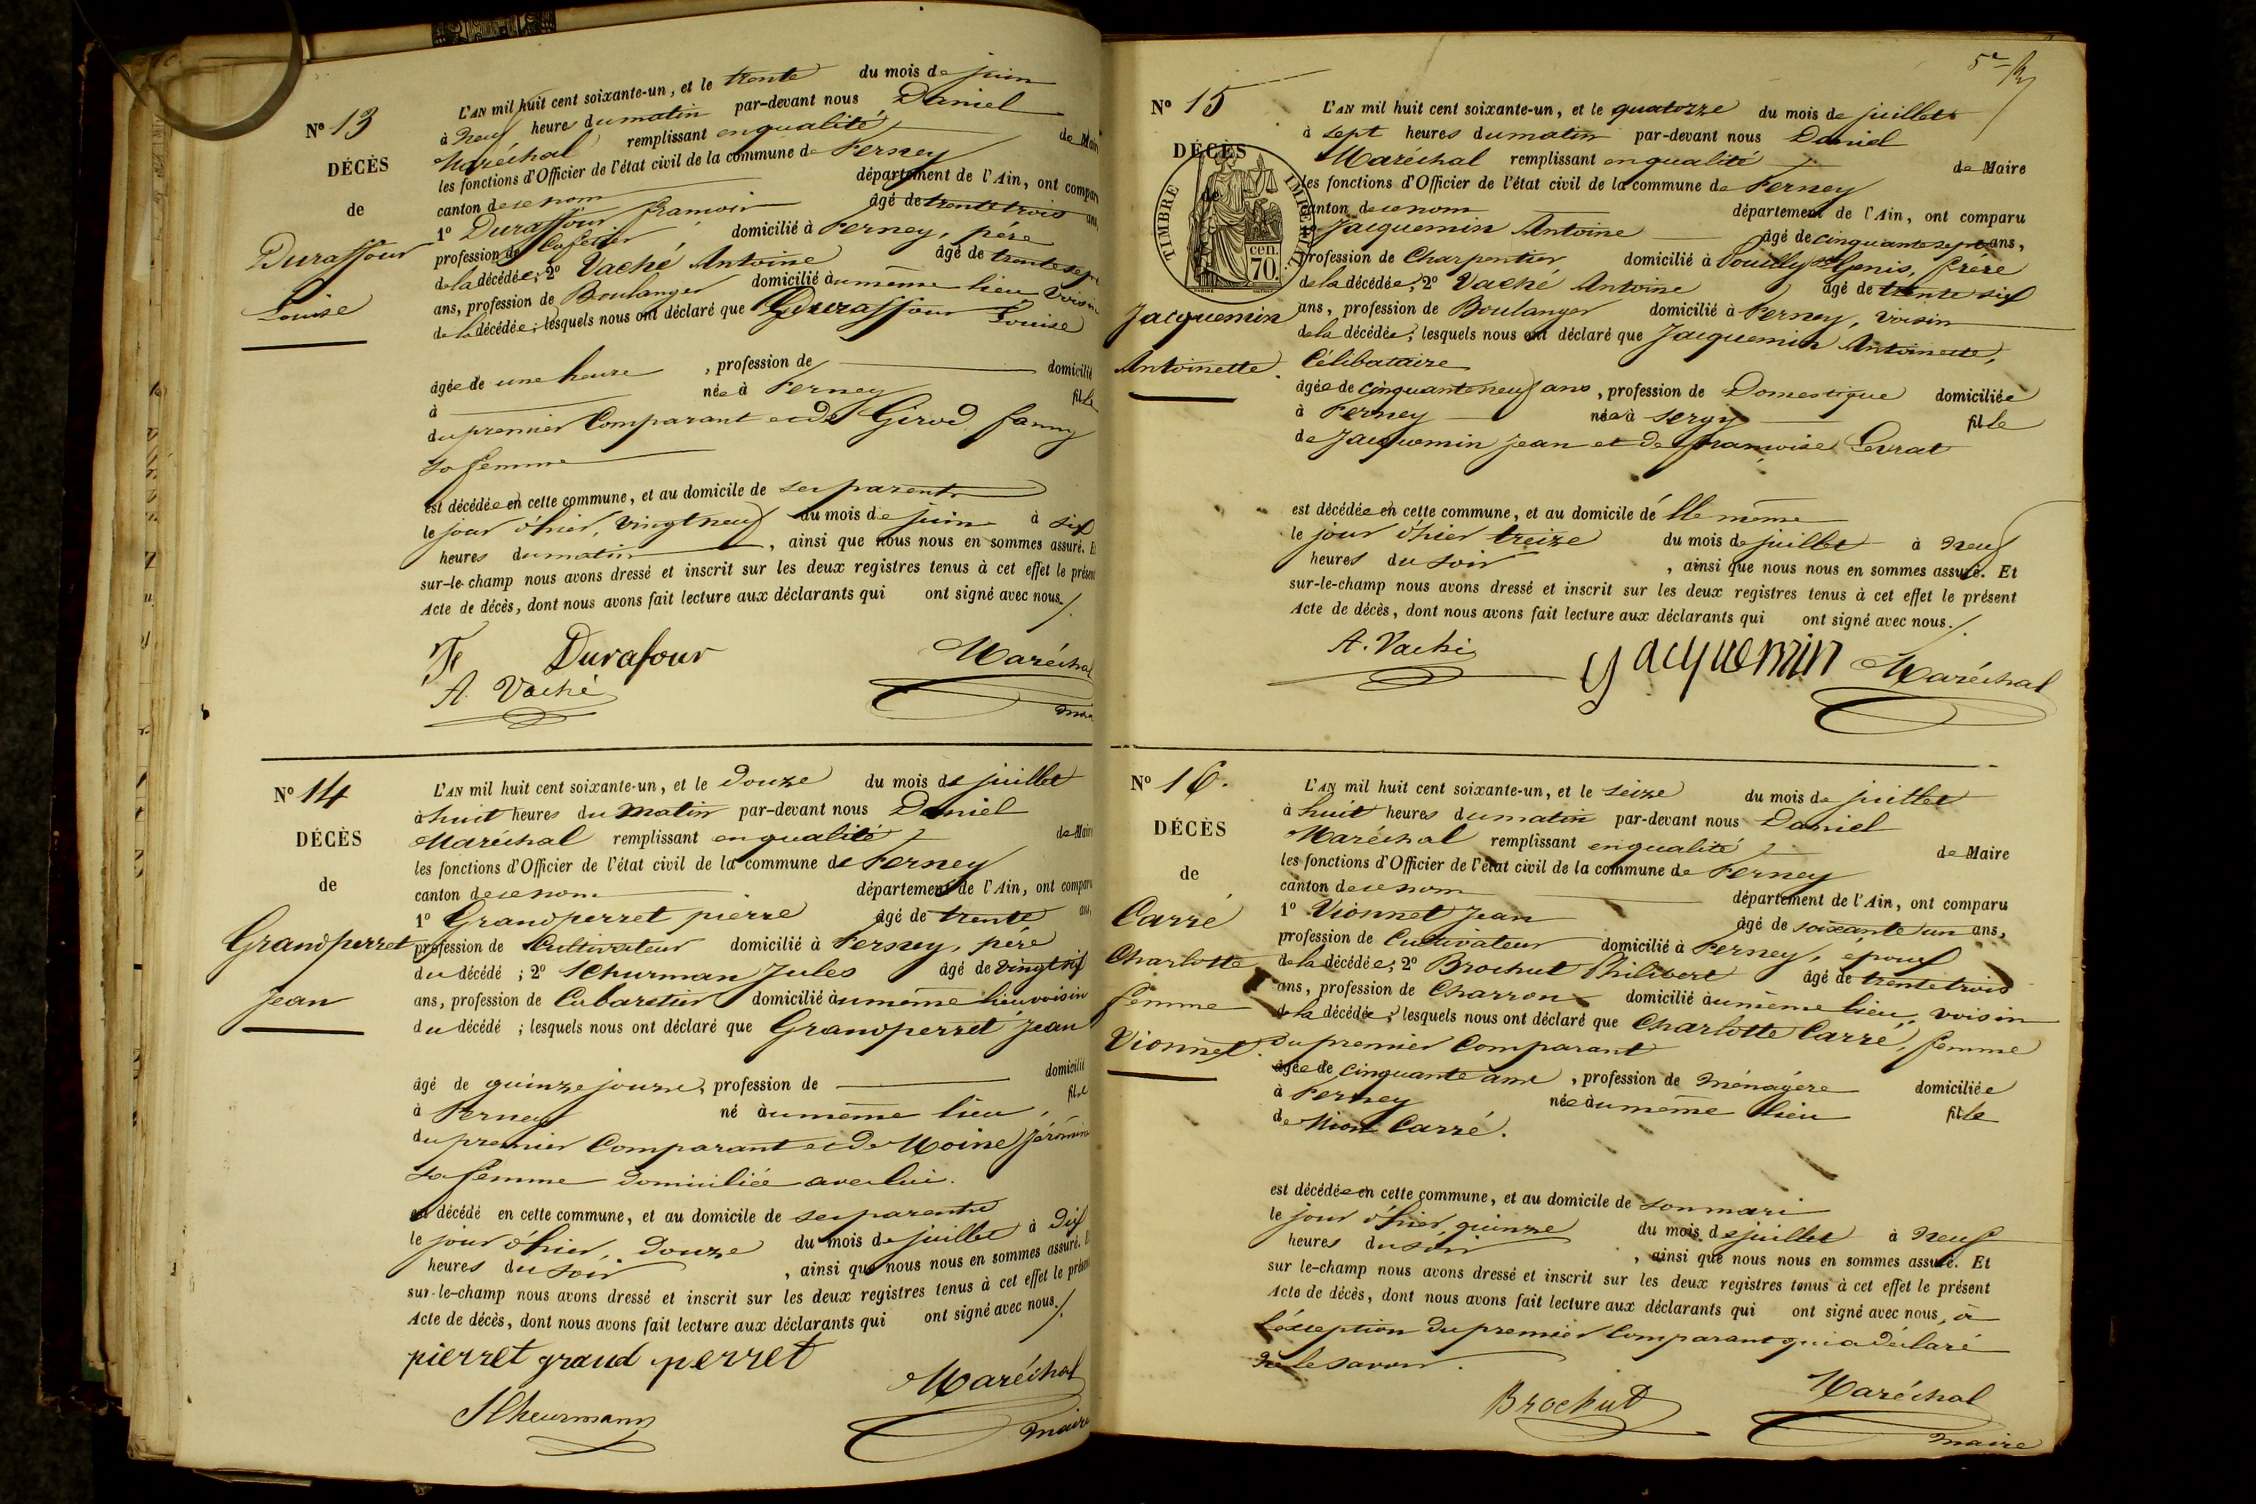 N° 13
DÉCÈS
de
Duraffour
Louise
L'AN mil huit cent soixante-un, et le trente du mois de juin
à neuf heure du matin par-devant nous Daniel
Maréchal remplissant en qualité de Mair
les fonctions d'Officier de l'état civil de la commune de Ferney
canton de ce nom département de l'Ain, ont comparu
1° Duraffour françois âgé de trente trois ans,
profession de Cafetier domicilié à Ferney, père
de la décédée; 2° Vaché Antoine âgé de trente sept
ans, profession de Boulanger domicilié au même lieu voisin
de la décédée; lesquels nous ont déclaré que Duraffour Louise
âgée de une heure, profession de domicilié
à née à Ferney fille
du premier Comparant et de Girod fanny
sa femme
est décédée en cette commune, et au domicile de ses parents
le jour d'hier, vingt neuf du mois de juin à six
heures du matin, ainsi que nous nous en sommes assuré. Et
sur-le-champ nous avons dressé et inscrit sur les deux registres tenus à cet effet le présent
Acte de décès, dont nous avons fait lecture aux déclarants qui ont signé avec nous.
Durafour
Maréchal
A. Vaché
N° 14
DÉCÈS
de
Grandperret
Jean
L'AN mil huit cent soixante-un, et le Douze du mois de juillet
à huit heures du Matin par-devant nous Daniel
Maréchal remplissant en qualité de Mair
les fonctions d'Officier de l'état civil de la commune de Ferney
canton de ce nom département de l'Ain, ont comparu
1° Grandperret pierre âgé de trente ans,
profession de Cultivateur domicilié à Ferney, père
du décédé ; 2° Schurman Jules âgé de vingt six
ans, profession de Cabaretier domicilié au même lieu voisin
du décédé ; lesquels nous ont déclaré que Grandperret Jean
âgé de quinze jours, profession de domicilié
à Ferney né au même lieu, fils
du premier Comparant et de Moine Jéromine
sa femme domiciliée avec lui.
est décédé en cette commune, et au domicile de ses parents
le jour d'hier, Douze du mois de juillet à Dix
heures du soir, ainsi que nous nous en sommes assuré. Et
sur-le-champ nous avons dressé et inscrit sur les deux registres tenus à cet effet le présent
Acte de décès, dont nous avons fait lecture aux déclarants qui ont signé avec nous.
pierret grand perret
Maréchal
maire
N° 15
DÉCÈS
de
TIMBRE IMPERIAL
cen.
70.
Jacquemin
Antoinette.
L'AN mil huit cent soixante-un, et le quatorze du mois de juillet
à sept heures du matin par-devant nous Daniel
Maréchal remplissant en qualité de Maire
les fonctions d'Officier de l'état civil de la commune de Ferney
canton de ce nom département de l'Ain, ont comparu
Jacquemin Antoine âgé de cinquante sept ans,
profession de Charpentier domicilié à Pouilly St Genis, frère
de la décédée; 2° Vaché Antoine âgé de trente six
ans, profession de Boulanger domicilié à Ferney, voisin
de la décédée; lesquels nous ont déclaré que Jacquemin Antoinette,
Célibataire
âgée de cinquante neuf ans, profession de Domestique domiciliée
à Ferney née à Sergy fille
de Jacquemin Jean et de françoise Levrat
est décédée en cette commune, et au domicile de elle même
le jour d'hier treize du mois de juillet à neuf
heures du soir, ainsi que nous nous en sommes assuré. Et
sur-le-champ nous avons dressé et inscrit sur les deux registres tenus à cet effet le présent
Acte de décès, dont nous avons fait lecture aux déclarants qui ont signé avec nous.
A. Vaché
Jacquemin
Maréchal
N° 16.
DÉCÈS
de
Carré
Charlotte
femme
Vionnet.
L'AN mil huit cent soixante-un, et le seize du mois de juillet
à huit heures du matin par-devant nous Daniel
Maréchal remplissant en qualité de Maire
les fonctions d'Officier de l'état civil de la commune de Ferney
canton de ce nom département de l'Ain, ont comparu
1° Vionnet Jean âgé de soixante un ans,
profession de Cultivateur domicilié à Ferney, époux
de la décédée; 2° Brochut Philibert âgé de trente trois
ans, profession de Charron domicilié au même lieu, voisin
de la décédée; lesquels nous ont déclaré que Charlotte Carré, femme
du premier Comparant
âgée de cinquante ans, profession de ménagère domiciliée
à Ferney née au même lieu fille
de Carré.
est décédée en cette commune, et au domicile de son mari
le jour d'hier, quinze du mois de juillet à neuf
heures du soir, ainsi que nous nous en sommes assuré. Et
sur le-champ nous avons dressé et inscrit sur les deux registres tenus à cet effet le présent
Acte de décès, dont nous avons fait lecture aux déclarants qui ont signé avec nous, à
l'exception du premier Comparant qui a déclaré
ne le savoir.
Brochut
Maréchal
maire